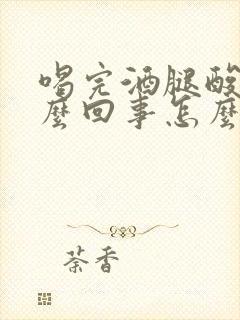 喝完酒腿酸
麼回事怎麼
荼香